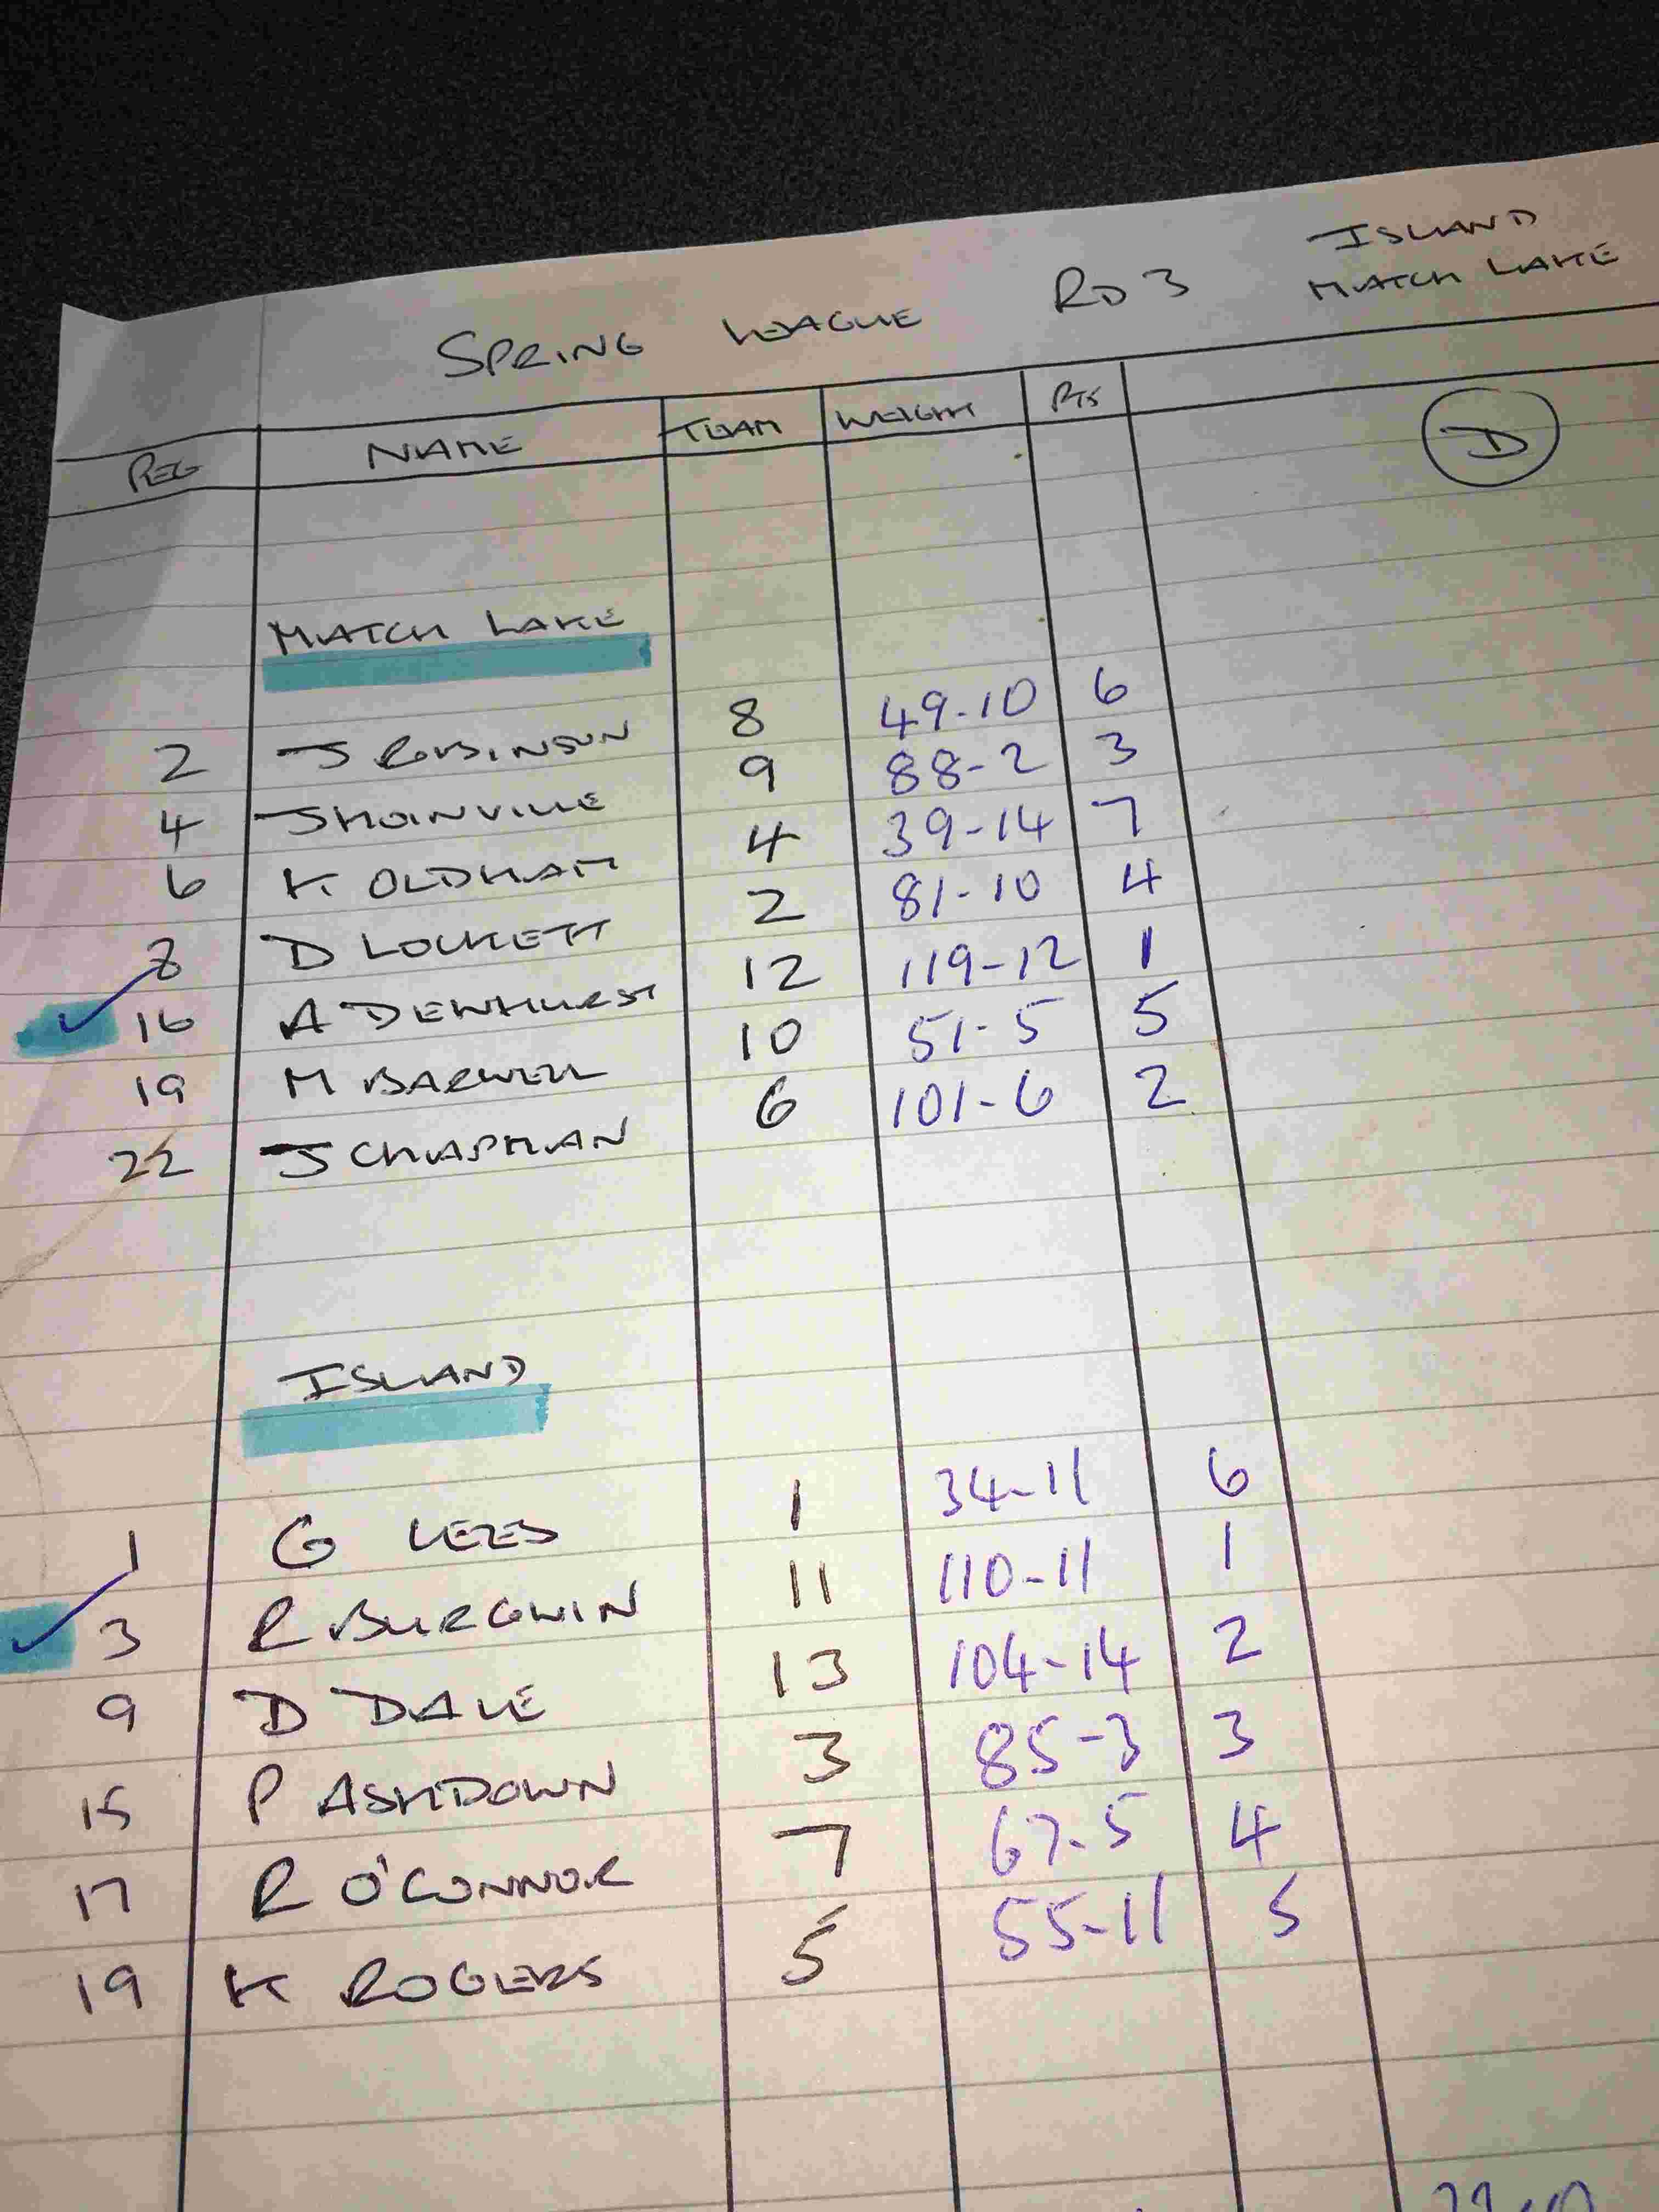 SPRING LEAGUE RD 3 ISLAND MATCH LAKE
PEG NAME TEAM WEIGHT PTS
D
MATCH LAKE
2 J ROBINSON 8 49-10 6
4 J HOINVILLE 9 88-2 3
6 K OLDHAM 4 39-14 7
8 D LOCKETT 2 81-10 4
16 A DEWHURST 12 119-12 1
19 M BARWELL 10 51-5 5
22 J CHAPMAN 6 101-6 2
ISLAND
1 G LEES 1 34-11 6
3 R BURGWIN 11 110-11 1
9 D DALE 13 104-14 2
15 P ASHDOWN 3 85-3 3
17 R O'CONNOR 7 67-5 4
19 K ROGERS 5 55-11 5